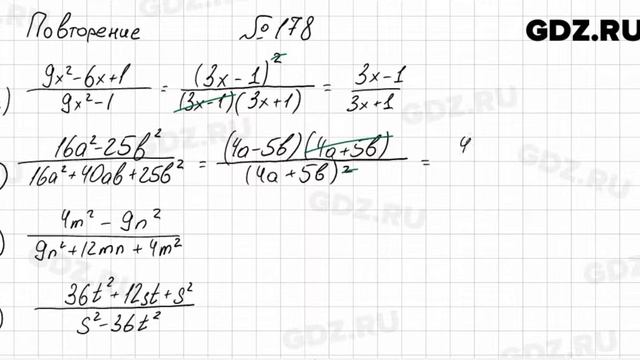 Повторение № 178
GDZ.RU
) (9x² - 6x + 1)/(9x² - 1) = (3x - 1)²/((3x - 1)(3x + 1)) = (3x - 1)/(3x + 1)
) (16a² - 25b²)/(16a² + 40ab + 25b²) = ((4a - 5b)(4a + 5b))/(4a + 5b)² = 4
) (4m² - 9n²)/(9n² + 12mn + 4m²)
) (36t² + 12st + s²)/(s² - 36t²)